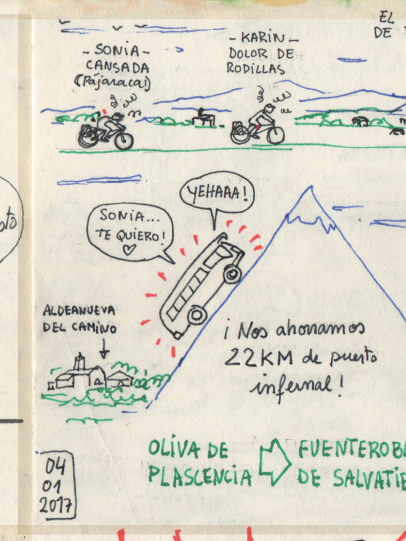 EL
DE
- SONIA -
CANSADA
(Pájaraca!)
- KARIN -
DOLOR DE
RODILLAS
YEHAAA!
SONIA...
TE QUIERO!
ALDEANUEVA
DEL CAMINO
¡Nos ahorramos
22KM de puerto
infernal!
OLIVA DE
PLASCENCIA
FUENTEROB
DE SALVATIE
04
01
2017